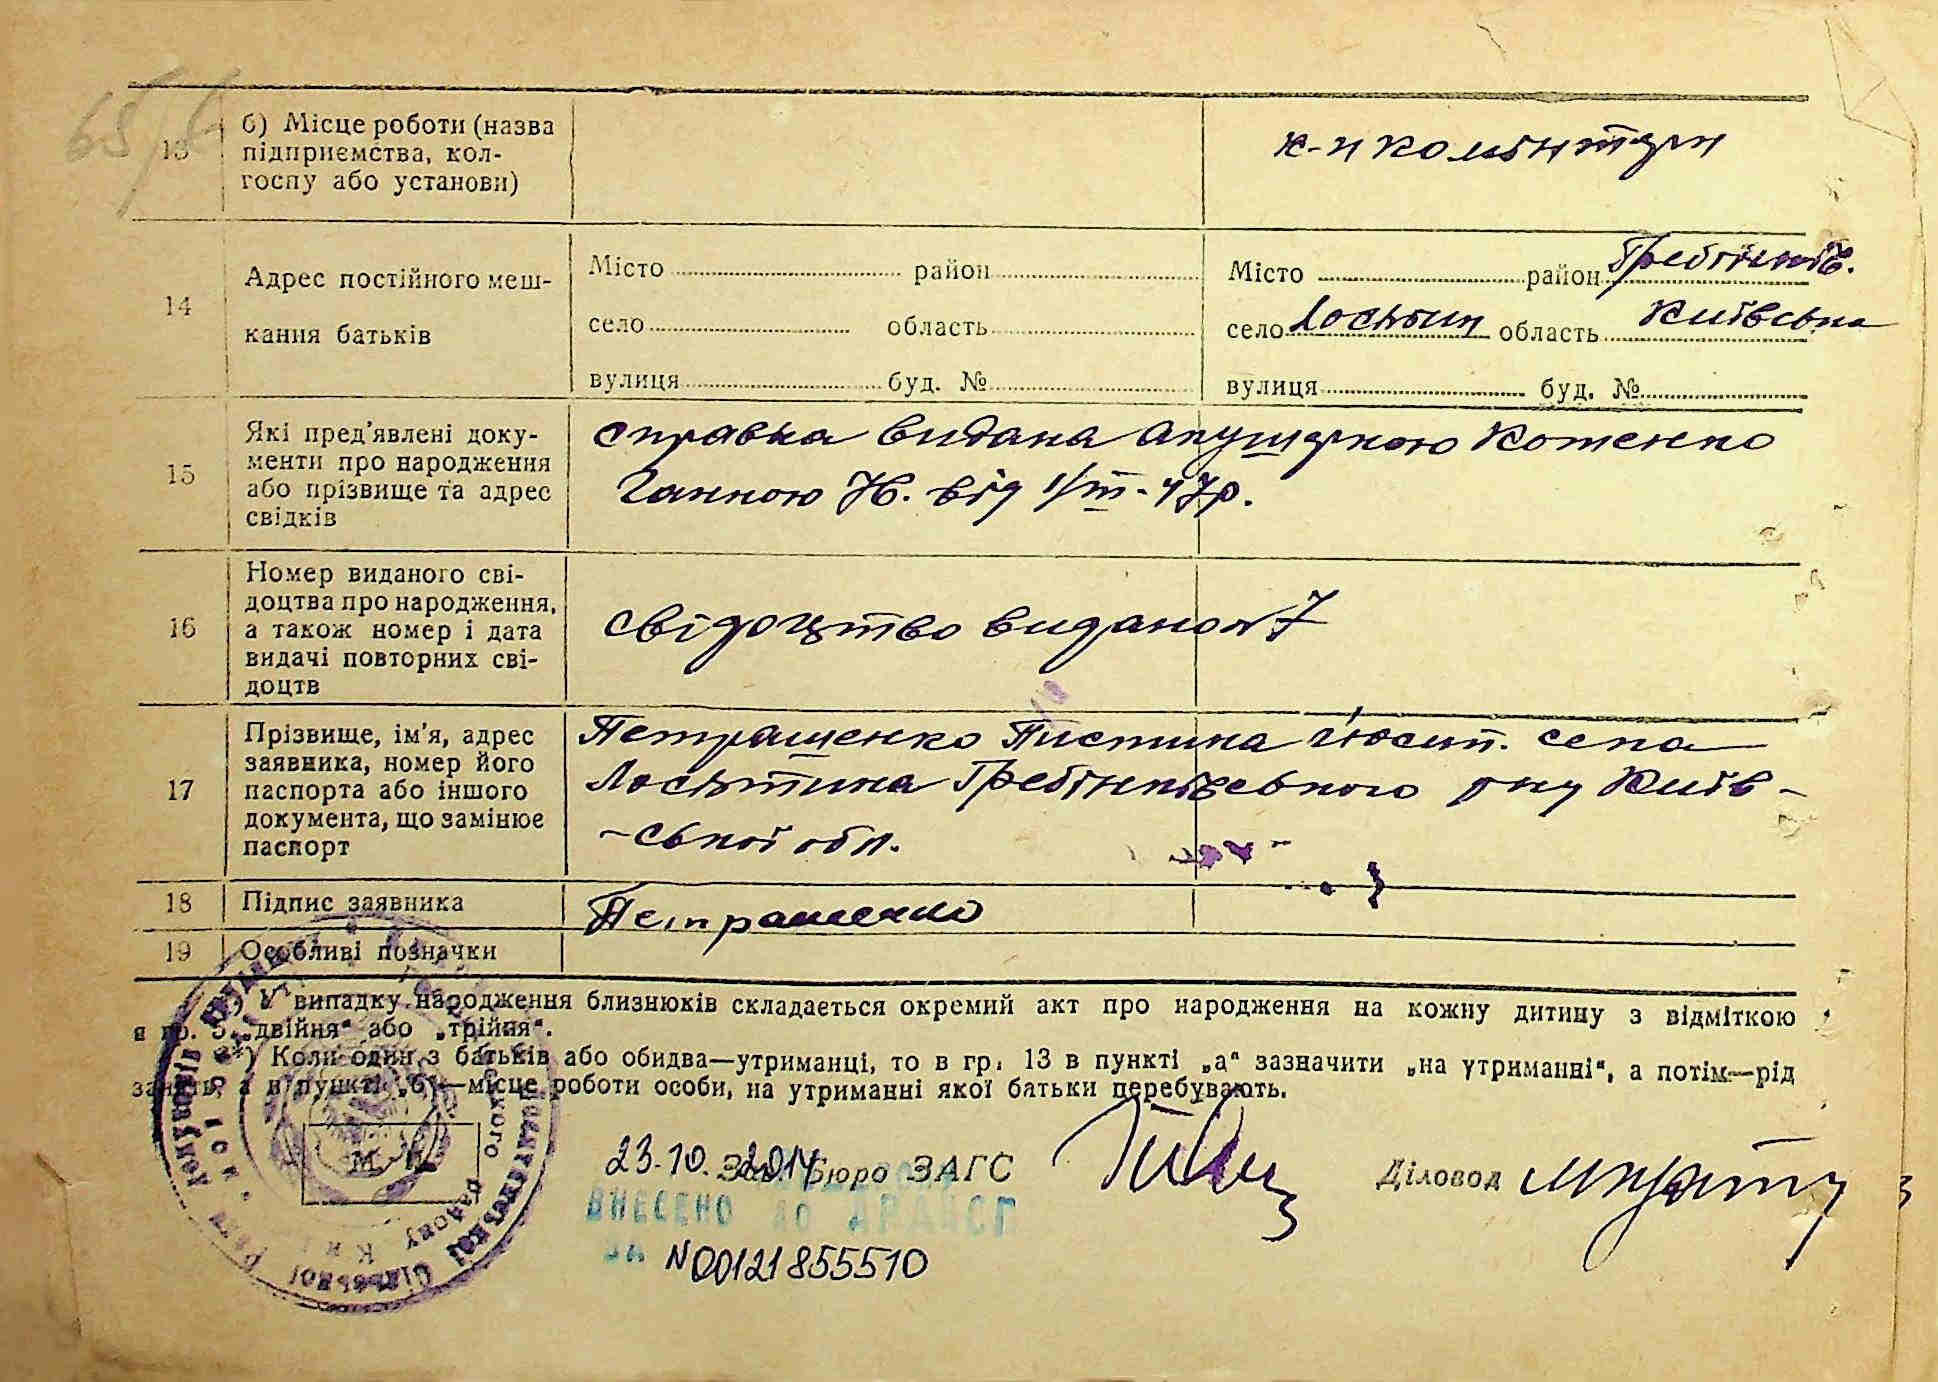 13
б) Місце роботи (назва
підприємства, кол-
госпу або установи)
к-п комінтерн
14
Адрес постійного меш-
кання батьків
Місто район
село область
вулиця буд. №
Місто район Гребінків.
село Лосятин область Київська
вулиця буд. №
15
Які пред'явлені доку-
менти про народження
або прізвище та адрес
свідків
справка видана акушеркою Котенко
Ганною Н. від 1/III-47р.
16
Номер виданого сві-
доцтва про народження,
а також номер і дата
видачі повторних сві-
доцтв
свідоцтво видано № 7
17
Прізвище, ім'я, адрес
заявника, номер його
паспорта або іншого
документа, що замінює
паспорт
Петращенко Пистина Йосип. села
Лосятина Гребінківського р-ну Київ-
-ської обл.
18
Підпис заявника
Петращенко
19
Особливі позначки
*) У випадку народження близнюків складається окремий акт про народження на кожну дитину з відміткою
в гр. 5 „двійня" або „трійня".
**) Коли один з батьків або обидва—утриманці, то в гр. 13 в пункті „а" зазначити „на утриманні", а потім—рід
занять, а в пункті „б"—місце роботи особи, на утриманні якої батьки перебувають.
М. П.
23.10.2014
Зав. Бюро ЗАГС
Діловод
ВНЕСЕНО до ДРАЦСГ
за №00121855510